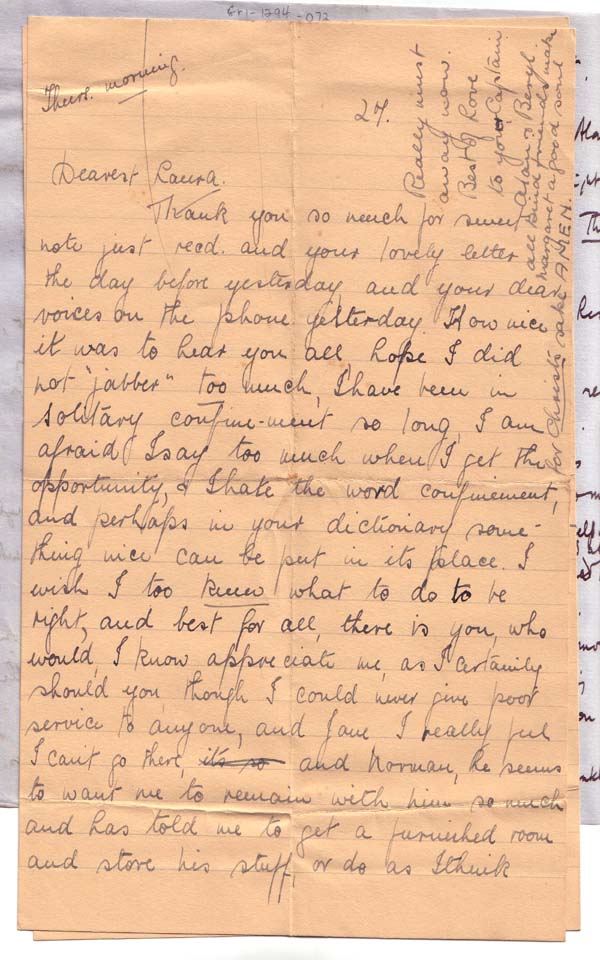 Thurs. morning.
27.
Dearest Laura.
Thank you so much for sweet
note just recd. and your lovely letter
the day before yesterday, and your dear
voices on the phone yesterday. How nice
it was to hear you all hope I did
not "jabber" too much, I have been in
solitary confine-ment so long, I am
afraid I say too much when I get the
opportunity, & I hate the word confinement,
and perhaps in your dictionary some-
thing nice can be put in its place. I
wish I too knew what to do to be
right, and best for all, there is you, who
would, I know appreciate me, as I certainly
should you, though I could never give poor
service to anyone, and Jane I really feel
I can't go there, its so and Norman, he seems
to want me to remain with him so much
and has told me to get a furnished room
and store his stuff, or do as I think
Really must
away now.
Best of Love
to your Captain
Alan & Beryl.
all kind friends make
Margaret a good soul
for Christs sake AMEN.